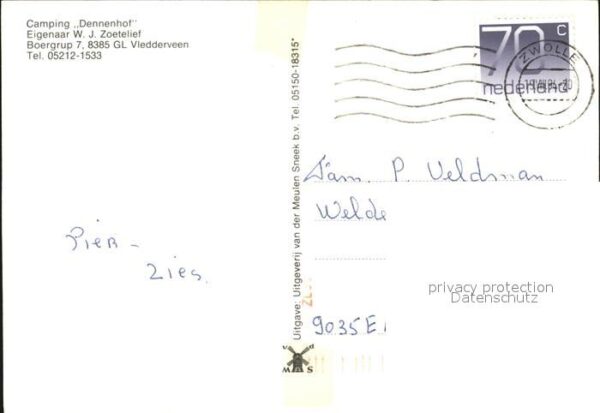 Camping „Dennenhof"
Eigenaar W. J. Zoetelief
Boergrup 7, 8385 GL Vledderveen
Tel. 05212-1533
70 c
nederland
ZWOLLE
Uitgave: Uitgeverij van der Meulen Sneek b.v. Tel. 05150-18315*
Fam. P. Veldman
Welde
Pier -
Zies.
privacy protection
Datenschutz
9035 E